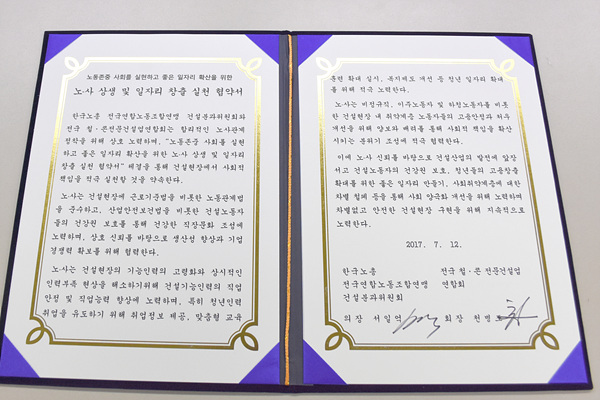 노동존중 사회를 실현하고 좋은 일자리 확산을 위한
노·사 상생 및 일자리 창출 실천 협약서
한국노총 전국연합노동조합연맹 건설분과위원회와
전국 철·콘전문건설업연합회는 합리적인 노사관계
정착을 위해 상호 노력하며, "노동존중 사회를 실현
하고 좋은 일자리 확산을 위한 노·사 상생 및 일자리
창출 실천 협약서" 체결을 통해 건설현장에서 사회적
책임을 적극 실현할 것을 약속한다.
노·사는 건설현장에 근로기준법을 비롯한 노동관계법
을 준수하고, 산업안전보건법을 비롯한 건설노동자
들의 건강권 보호를 통해 건강한 직장문화 조성에
노력하며, 상호 신뢰를 바탕으로 생산성 향상과 기업
경쟁력 확보를 위해 협력한다.
노·사는 건설현장의 기능인력의 고령화와 상시적인
인력부족 현상을 해소하기위해 건설기능인력의 직업
안정 및 직업능력 향상에 노력하며, 특히 청년인력
취업을 유도하기 위해 취업정보 제공, 맞춤형 교육
훈련 확대 실시, 복지제도 개선 등 청년 일자리 확대
를 위해 적극 노력한다.
노·사는 비정규직, 이주노동자 및 하청노동자를 비롯
한 건설현장 내 취약계층 노동자들의 고용안정과 처우
개선을 위해 양보와 배려를 통해 사회적 책임을 확산
시키는 분위기 조성에 적극 협력한다.
이에 노사 신뢰를 바탕으로 건설산업의 발전에 앞장
서고 건설노동자의 건강권 보호, 청년들의 고용창출
확대를 위한 좋은 일자리 만들기, 사회취약계층에 대한
차별 철폐 등을 통해 사회 양극화 개선을 위해 노력하며
차별없고 안전한 건설현장 구현을 위해 지속적으로
노력한다.
2017. 7. 12.
한국노총 전국 철·콘 전문건설업
전국연합노동조합연맹 연합회
건설분과위원회
의장 서일억 회장 천병